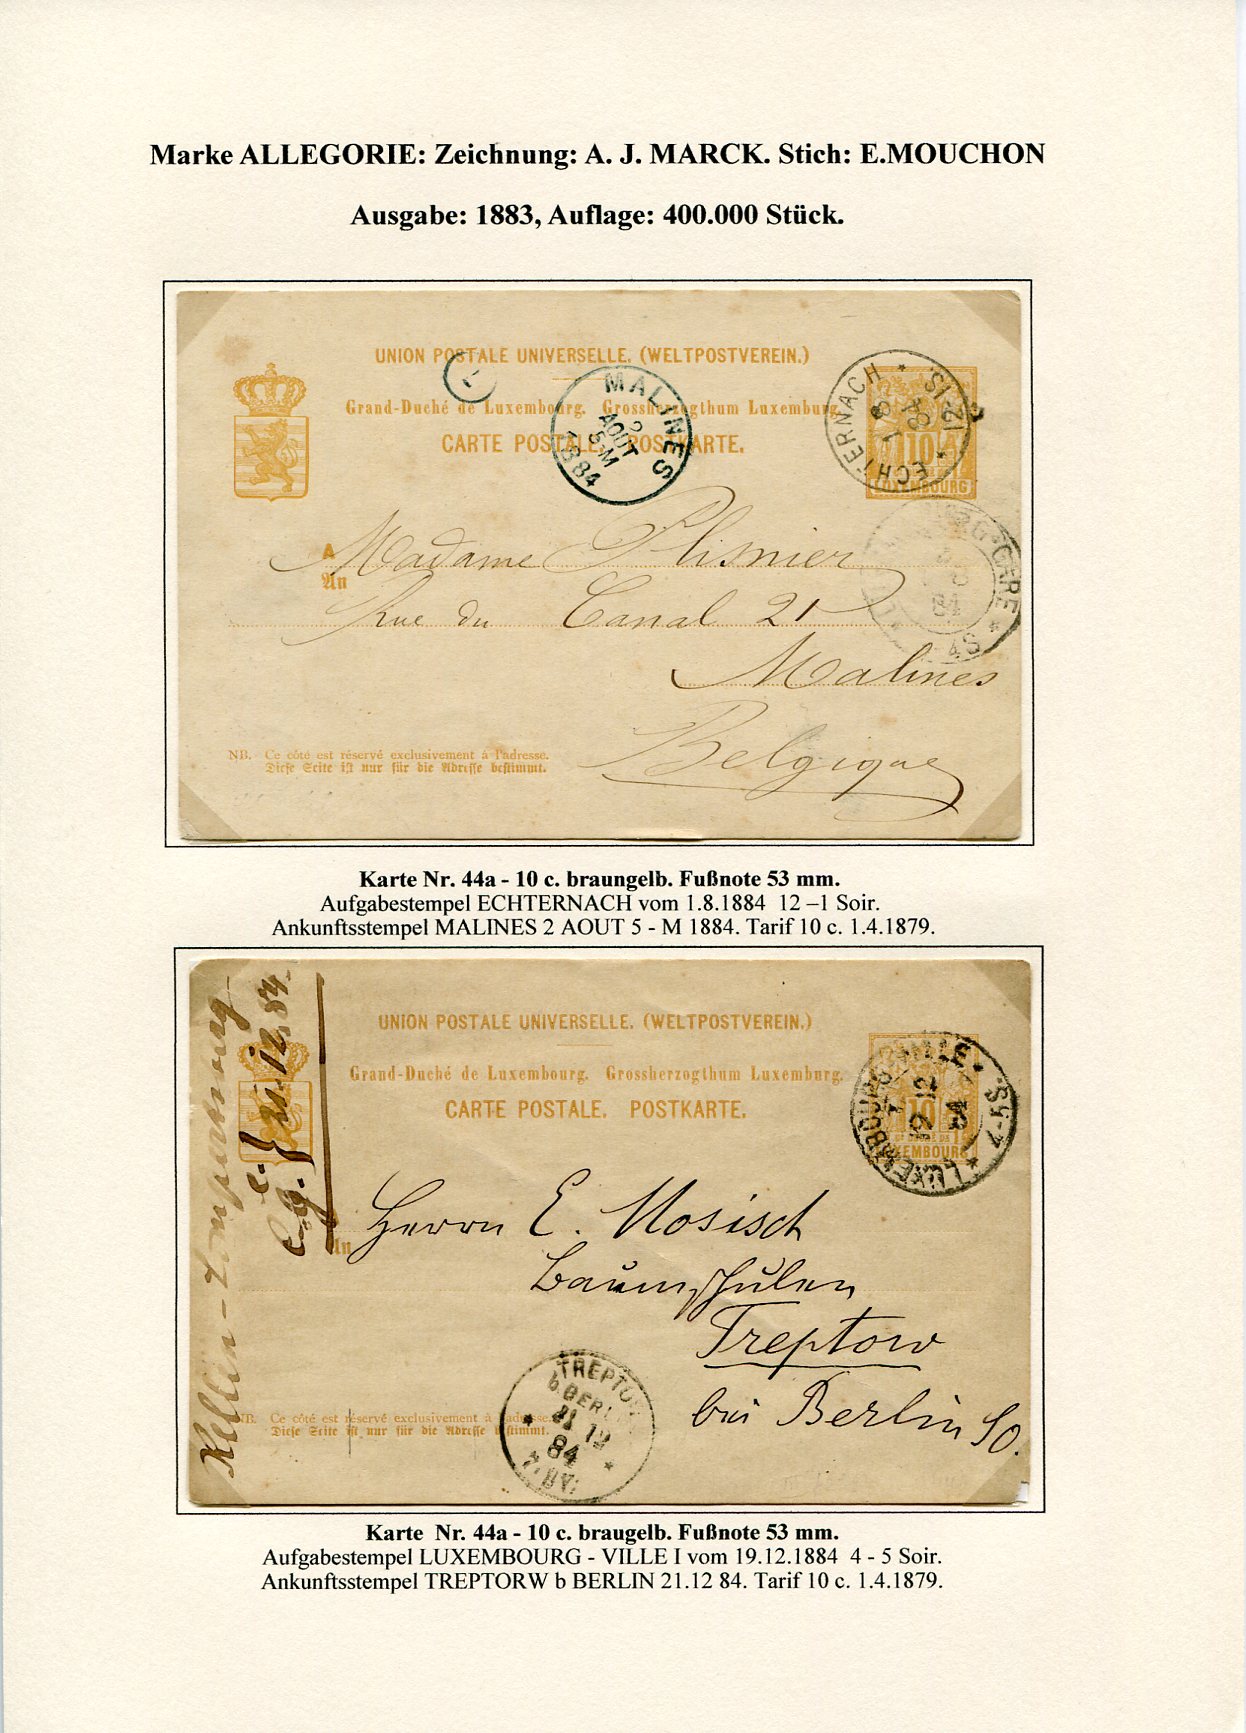 Marke ALLEGORIE: Zeichnung: A. J. MARCK. Stich: E.MOUCHON
Ausgabe: 1883, Auflage: 400.000 Stück.
UNION POSTALE UNIVERSELLE. (WELTPOSTVEREIN.)
Grand-Duché de Luxembourg. Grossherzogthum Luxemburg.
CARTE POSTALE. POSTKARTE.
MALINES
2
AOUT
5-M
1884
ECHTERNACH * 12-1S *
1
8
84
10
LUXEMBOURG
GARE * 4-5S *
84
A Madame Plisnier
An
Rue du Canal 21
Malines
Belgique
NB. Ce côté est réservé exclusivement à l'adresse.
Diese Seite ist nur für die Adresse bestimmt.
Karte Nr. 44a - 10 c. braungelb. Fußnote 53 mm.
Aufgabestempel ECHTERNACH vom 1.8.1884 12 –1 Soir.
Ankunftsstempel MALINES 2 AOUT 5 - M 1884. Tarif 10 c. 1.4.1879.
21.12.84.
UNION POSTALE UNIVERSELLE. (WELTPOSTVEREIN.)
Grand-Duché de Luxembourg. Grossherzogthum Luxemburg.
CARTE POSTALE. POSTKARTE.
LUXEMBOURG-VILLE * 4-5S *
19 12
84
10
LUXEMBOURG
An Herrn E. Mosisch
Baumschulen
Treptow
bei Berlin SO.
TREPTOW
b BERLIN
21 12
84
7-8V.
NB. Ce côté est réservé exclusivement à l'adresse.
Diese Seite ist nur für die Adresse bestimmt.
Karte Nr. 44a - 10 c. braugelb. Fußnote 53 mm.
Aufgabestempel LUXEMBOURG - VILLE I vom 19.12.1884 4 - 5 Soir.
Ankunftsstempel TREPTORW b BERLIN 21.12 84. Tarif 10 c. 1.4.1879.